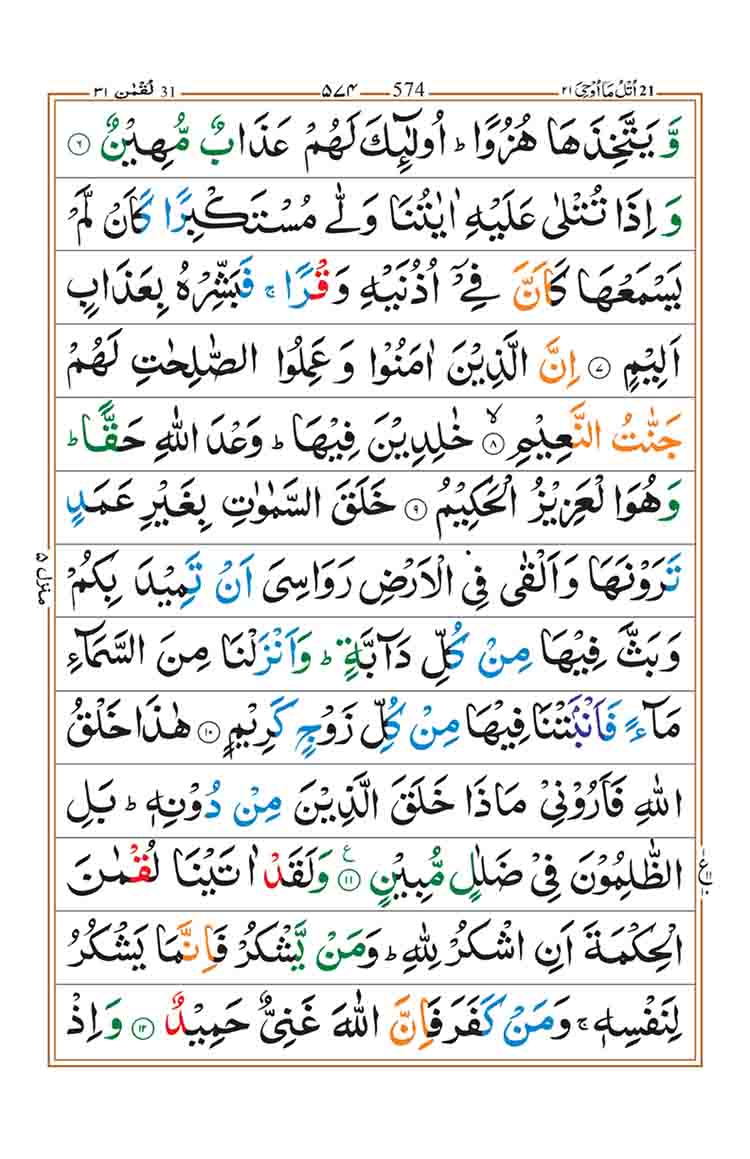 اُتْلُ مَآ اُوْحِیَ ٢١ 21 574 ۵۷۴ 31 لُقْمٰن ٣١
وَّ یَتَّخِذَهَا هُزُوًا ؕ اُولٰٓىِٕكَ لَهُمْ عَذَابٌ مُّهِیْنٌ ۶
وَ اِذَا تُتْلٰی عَلَیْهِ اٰیٰتُنَا وَلّٰی مُسْتَكْبِرًا كَاَنْ لَّمْ
یَسْمَعْهَا كَاَنَّ فِیْۤ اُذُنَیْهِ وَقْرًا ۚ فَبَشِّرْهُ بِعَذَابٍ
اَلِیْمٍ ۷ اِنَّ الَّذِیْنَ اٰمَنُوْا وَ عَمِلُوا الصّٰلِحٰتِ لَهُمْ
جَنّٰتُ النَّعِیْمِ ۸ۙ خٰلِدِیْنَ فِیْهَا ؕ وَعْدَ اللّٰهِ حَقًّا ؕ
وَ هُوَ الْعَزِیْزُ الْحَكِیْمُ ۹ خَلَقَ السَّمٰوٰتِ بِغَیْرِ عَمَدٍ
تَرَوْنَهَا وَ اَلْقٰی فِی الْاَرْضِ رَوَاسِیَ اَنْ تَمِیْدَ بِكُمْ
وَ بَثَّ فِیْهَا مِنْ كُلِّ دَآبَّةٍ ؕ وَ اَنْزَلْنَا مِنَ السَّمَآءِ
مَآءً فَاَنْۢبَتْنَا فِیْهَا مِنْ كُلِّ زَوْجٍ كَرِیْمٍ ۱۰ هٰذَا خَلْقُ
اللّٰهِ فَاَرُوْنِیْ مَاذَا خَلَقَ الَّذِیْنَ مِنْ دُوْنِهٖ ؕ بَلِ
الظّٰلِمُوْنَ فِیْ ضَلٰلٍ مُّبِیْنٍ ۱۱ ع وَ لَقَدْ اٰتَیْنَا لُقْمٰنَ
الْحِكْمَةَ اَنِ اشْكُرْ لِلّٰهِ ؕ وَ مَنْ یَّشْكُرْ فَاِنَّمَا یَشْكُرُ
لِنَفْسِهٖ ۚ وَ مَنْ كَفَرَ فَاِنَّ اللّٰهَ غَنِیٌّ حَمِیْدٌ ۱۲ وَ اِذْ
منزل ۵